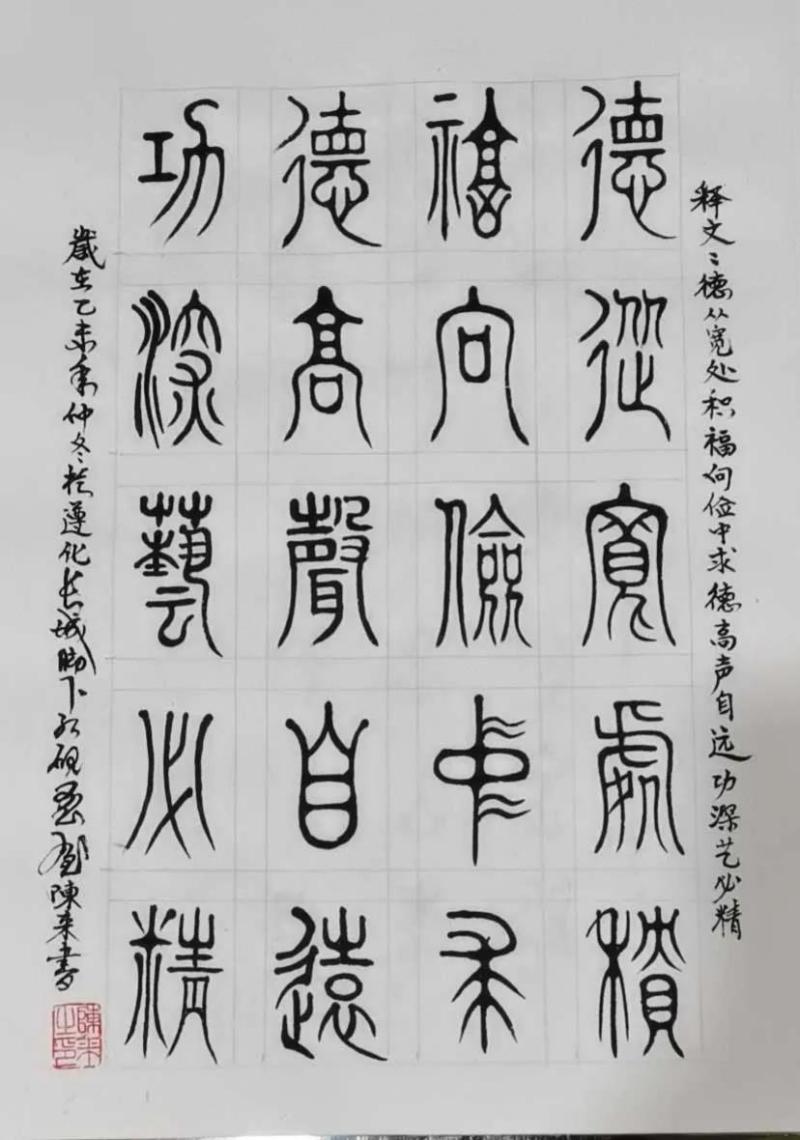 释文:德从宽处积福向俭中求德高声自远功深艺必精
德從寬處積
福向儉中求
德高聲自遠
功深藝必精
歲在乙未年仲冬於遵化长城脚下 陳来書